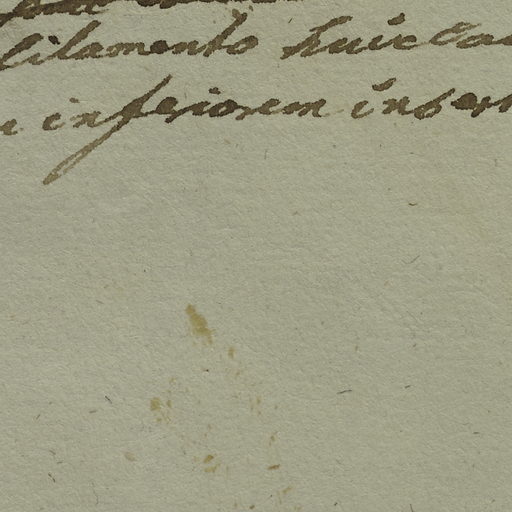 filamento huic la
inferiorem insert